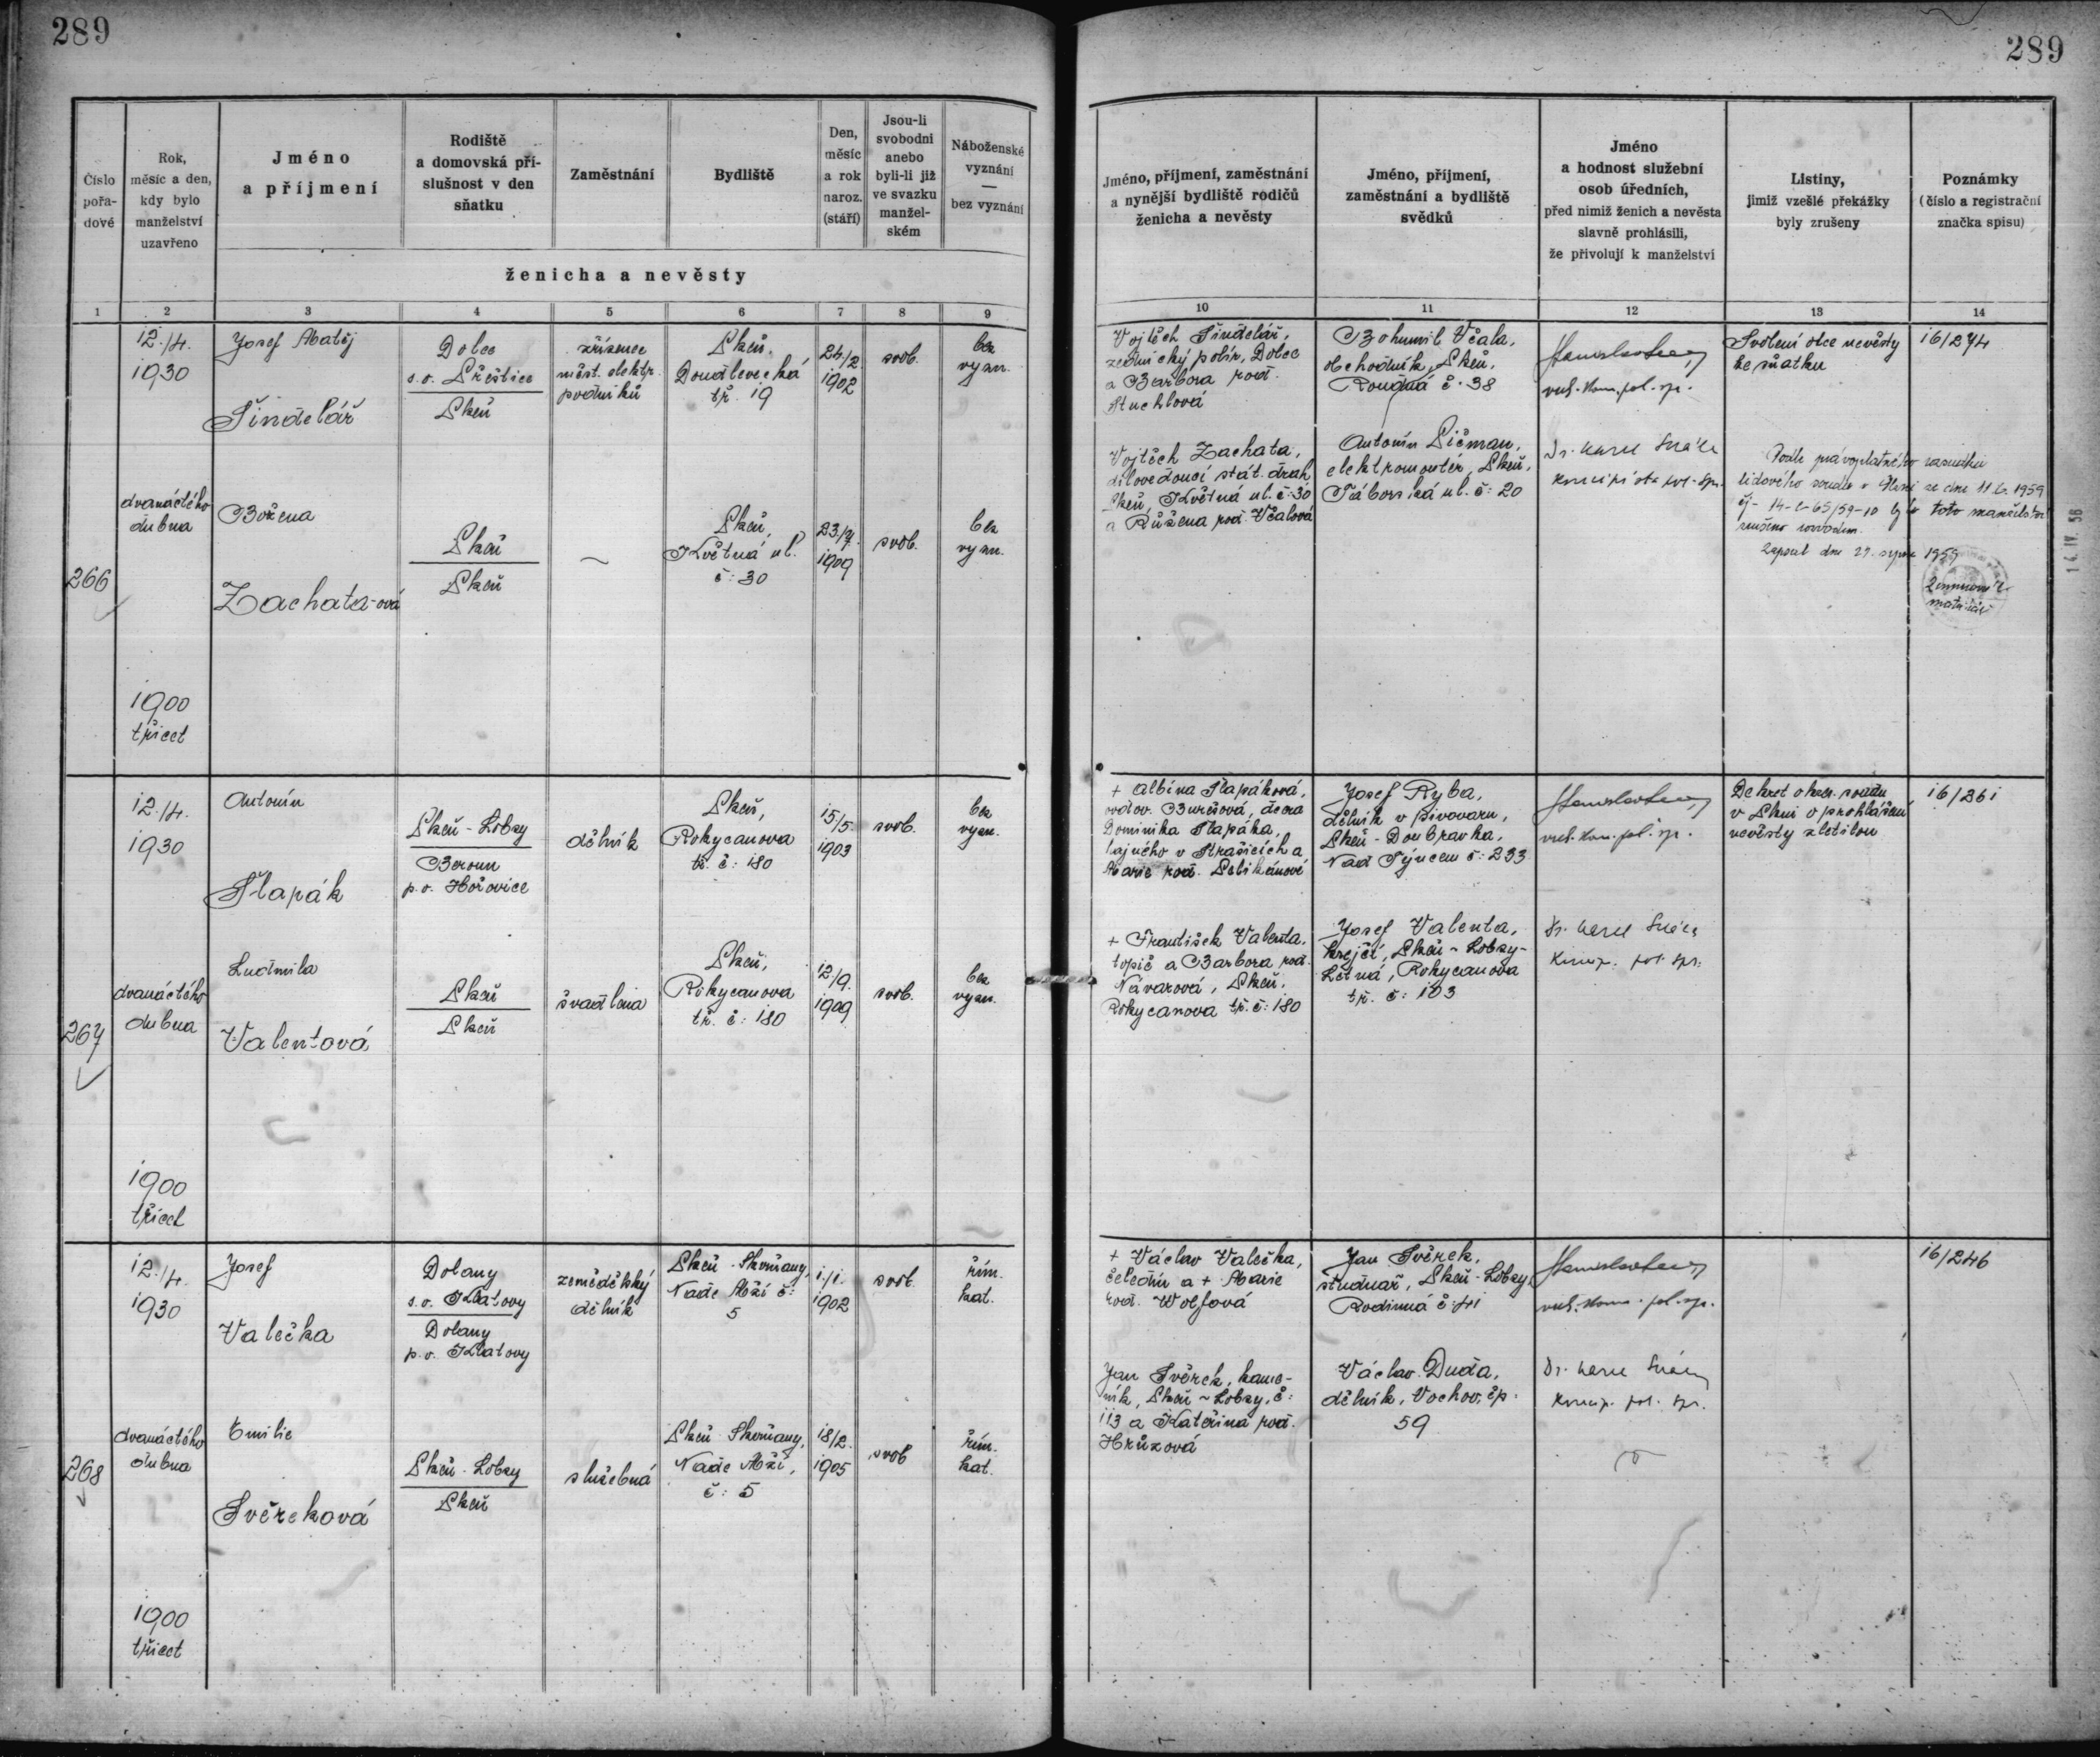 289
289
Číslo pořadové
Rok, měsíc a den, kdy bylo manželství uzavřeno
Jméno a příjmení
Rodiště a domovská příslušnost v den sňatku
Zaměstnání
Bydliště
Den, měsíc a rok naroz. (stáří)
Jsou-li svobodni anebo byli-li již ve svazku manželském
Náboženské vyznání — bez vyznání
ženicha a nevěsty
Jméno, příjmení, zaměstnání a nynější bydliště rodičů ženicha a nevěsty
Jméno, příjmení, zaměstnání a bydliště svědků
Jméno a hodnost služební osob úředních, před nimiž ženich a nevěsta slavně prohlásili, že přivolují k manželství
Listiny, jimiž vzešlé překážky byly zrušeny
Poznámky (číslo a registrační značka spisu)
1 2 3 4 5 6 7 8 9 10 11 12 13 14
266
12./4.
1930
dvanáctého
dubna
1900
třicet
Josef Matěj
Šindelář
Dolce
s.o. Přeštice
Plzeň
zřízenec
měst. elektr.
podniků
Plzeň,
Doudlevecká
tř. 19
24./2.
1902
svob.
bez
vyzn.
Vojtěch Šindelář,
zednický polír, Dolce
a Barbora roz.
Stuchlová
Bohumil Včala,
obchodník, Plzeň,
Roudná č. 38
Svolení otce nevěsty
ke sňatku
16/274
Božena
Zachata-ová
Plzeň
Plzeň
~
Plzeň,
Květná ul.
č: 30
23./7.
1909
svob.
bez
vyzn.
Vojtěch Zachata,
dílovedoucí stát. drah
Plzeň, Květná ul. č: 30
a Růžena roz. Včalová
Antonín Pičman,
elektromontér, Plzeň,
Táborská ul. č: 20
Dr. Karel
koncipista pol. spr.
Podle právoplatného rozsudku
lidového soudu v Plzni ze dne 11.6.1959
čj. 14-C-65/59-10 bylo toto manželství
zrušeno rozvodem.
Zapsal dne 29. srpna 1959
matrikář
14.IV.56
267
12./4.
1930
dvanáctého
dubna
1900
třicet
Antonín
Šlapák
Plzeň - Lobzy
Beroun
p.o. Hořovice
dělník
Plzeň,
Rokycanova
tř. č: 180
15/5.
1903
svob.
bez
vyzn.
+ Albína Šlapáková,
ovdov. Burešová, dcera
Dominika Šlapáka,
hajného v Strašicích a
Marie roz. Pelikánové
Josef Ryba,
dělník v pivovaru,
Plzeň - Doubravka,
Nad Týncem č: 233
Dekret okres. soudu
v Plzni o prohlášení
nevěsty zletilou
16/261
Ludmila
Valentová
Plzeň
Plzeň
švadlena
Plzeň,
Rokycanova
tř. č: 180
12/9.
1909
svob.
bez
vyzn.
+ František Valenta,
topič a Barbora roz.
Návarová, Plzeň,
Rokycanova tř. č: 180
Josef Valenta,
krejčí, Plzeň - Lobzy-
Letná, Rokycanova
tř. č: 103
Dr. Karel
koncip. pol. spr.
268
12./4.
1930
dvanáctého
dubna
1900
třicet
Josef
Valečka
Dolany
s.o. Klatovy
Dolany
p.o. Klatovy
zemědělský
dělník
Plzeň - Skvrňany,
Nade Mží č:
5
1./1.
1902
svob.
řím.
kat.
+ Václav Valečka,
čeledín a + Marie
roz. Wolfová
Jan Svěrek,
studnař, Plzeň - Lobzy,
Rodinná č. 41
16/246
Emilie
Svěreková
Plzeň - Lobzy
Plzeň
služebná
Plzeň Skvrňany,
Nade Mží,
č: 5
18/2.
1905
svob.
řím.
kat.
Jan Svěrek, kame-
ník, Plzeň ~ Lobzy, č:
113 a Kateřina roz.
Hrůzová
Václav Duda,
dělník, Vochov, čp:
59
Dr. Karel
koncip. pol. spr.